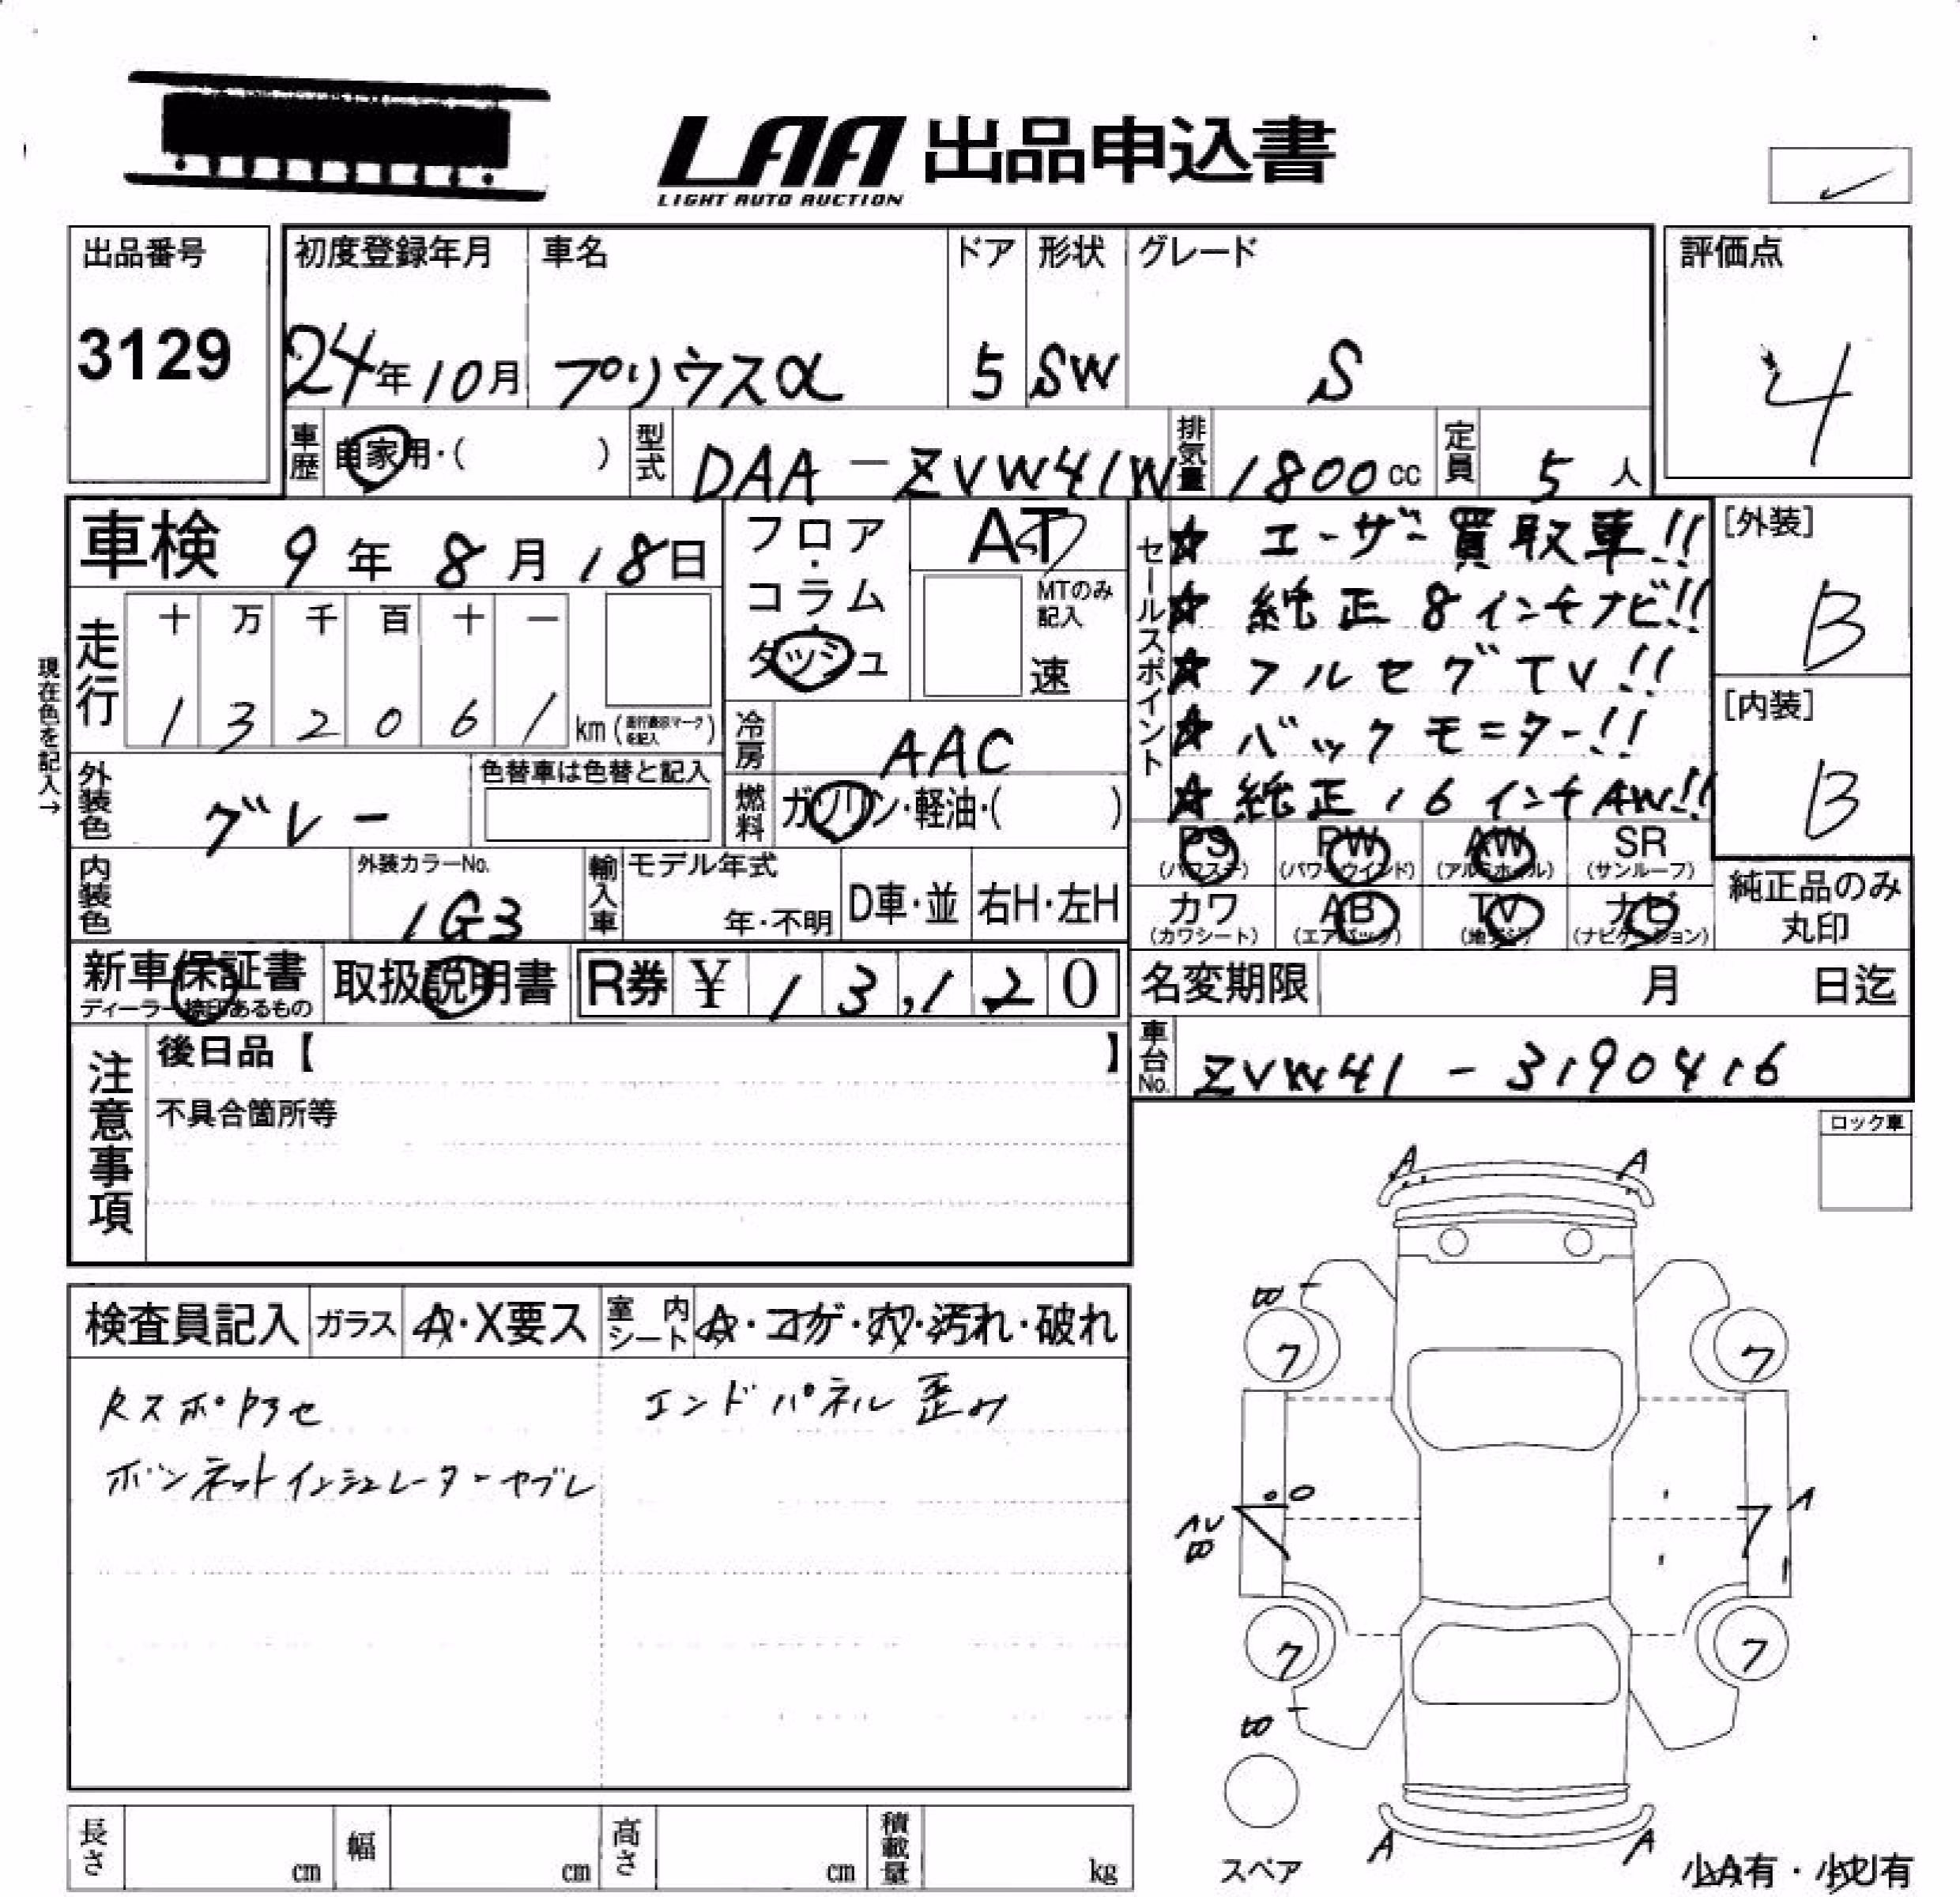 LAA 出品申込書
LIGHT AUTO AUCTION
出品番号
3129
初度登録年月
24年10月
車名
プリウスα
ドア
5
形状
SW
グレード
S
評価点
4
車歴
自家用・( )
型式
DAA-ZVW41W
排気量
1800cc
定員
5人
車検 9年8月18日
フロア・コラム・ダッシュ
AT
MTのみ記入
速
セールスポイント
☆ ユーザー買取車!!
☆ 純正8インチナビ!!
☆ フルセグTV!!
☆ バックモニター!!
☆ 純正16インチAW!!
[外装]
B
[内装]
B
現在色を記入→
走行
十 万 千 百 十 一
1 3 2 0 6 1 km
冷房
AAC
外装色
グレー
色替車は色替と記入
燃料
ガソリン・軽油・( )
内装色
外装カラーNo.
1G3
輸入車
モデル年式
年・不明
D車・並
右H・左H
PS (パワステ)
PW (パワーウインド)
AW (アルミホイル)
SR (サンルーフ)
カワ (カワシート)
AB (エアバック)
TV (地デジ)
ナビ (ナビゲーション)
純正品のみ丸印
新車保証書
ディーラー捺印あるもの
取扱説明書
R券 ¥13,120
名変期限 月 日迄
車台No.
ZVW41-3190416
注意事項
後日品【 】
不具合箇所等
ロック車
検査員記入
ガラス
A・X要ス
室内シート
A・コゲ・穴・汚れ・破れ
エンドパネル歪み
ボンネットインシュレーターヤブレ
A A
B
7 7
A
B
A
7 7
B
A A
スペア
小A有・小U有
長さ cm
幅 cm
高さ cm
積載量 kg